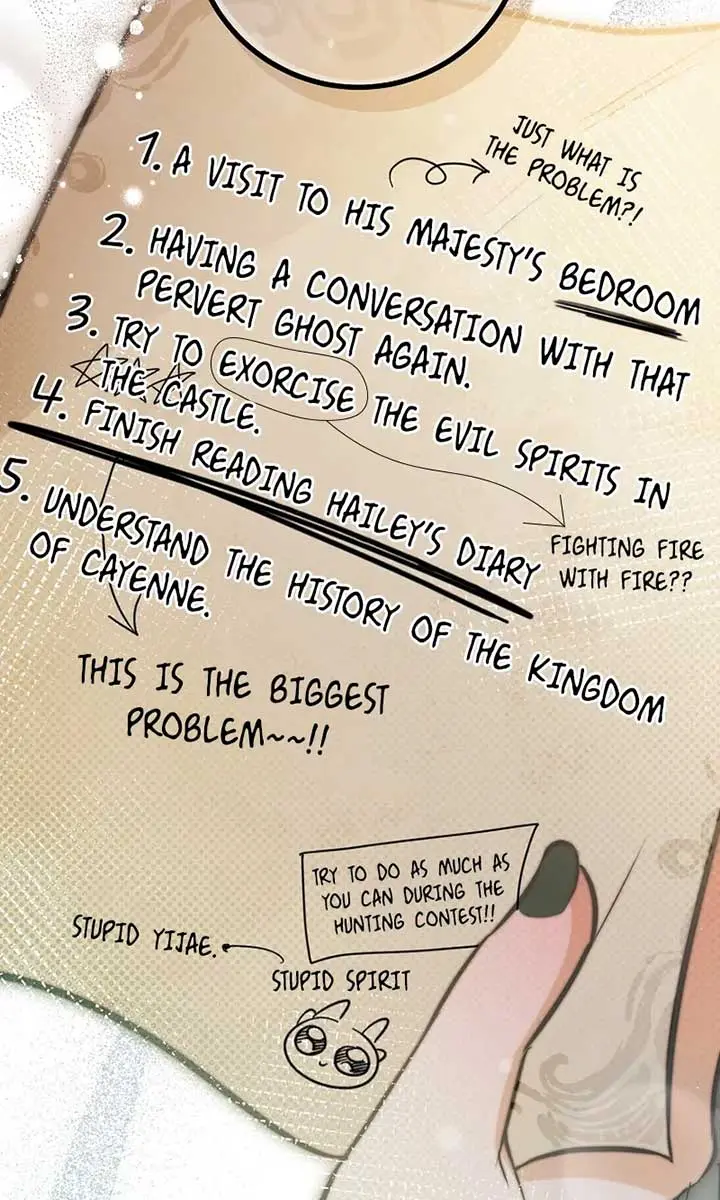 JUST WHAT IS
THE PROBLEM?!
1. A VISIT TO HIS MAJESTY'S BEDROOM
2. HAVING A CONVERSATION WITH THAT
PERVERT GHOST AGAIN.
3. TRY TO EXORCISE THE EVIL SPIRITS IN
THE CASTLE.
4. FINISH READING HAILEY'S DIARY
FIGHTING FIRE
WITH FIRE??
5. UNDERSTAND THE HISTORY OF THE KINGDOM
OF CAYENNE.
THIS IS THE BIGGEST
PROBLEM~~!!
TRY TO DO AS MUCH AS
YOU CAN DURING THE
HUNTING CONTEST!!
STUPID YIJAE.
STUPID SPIRIT